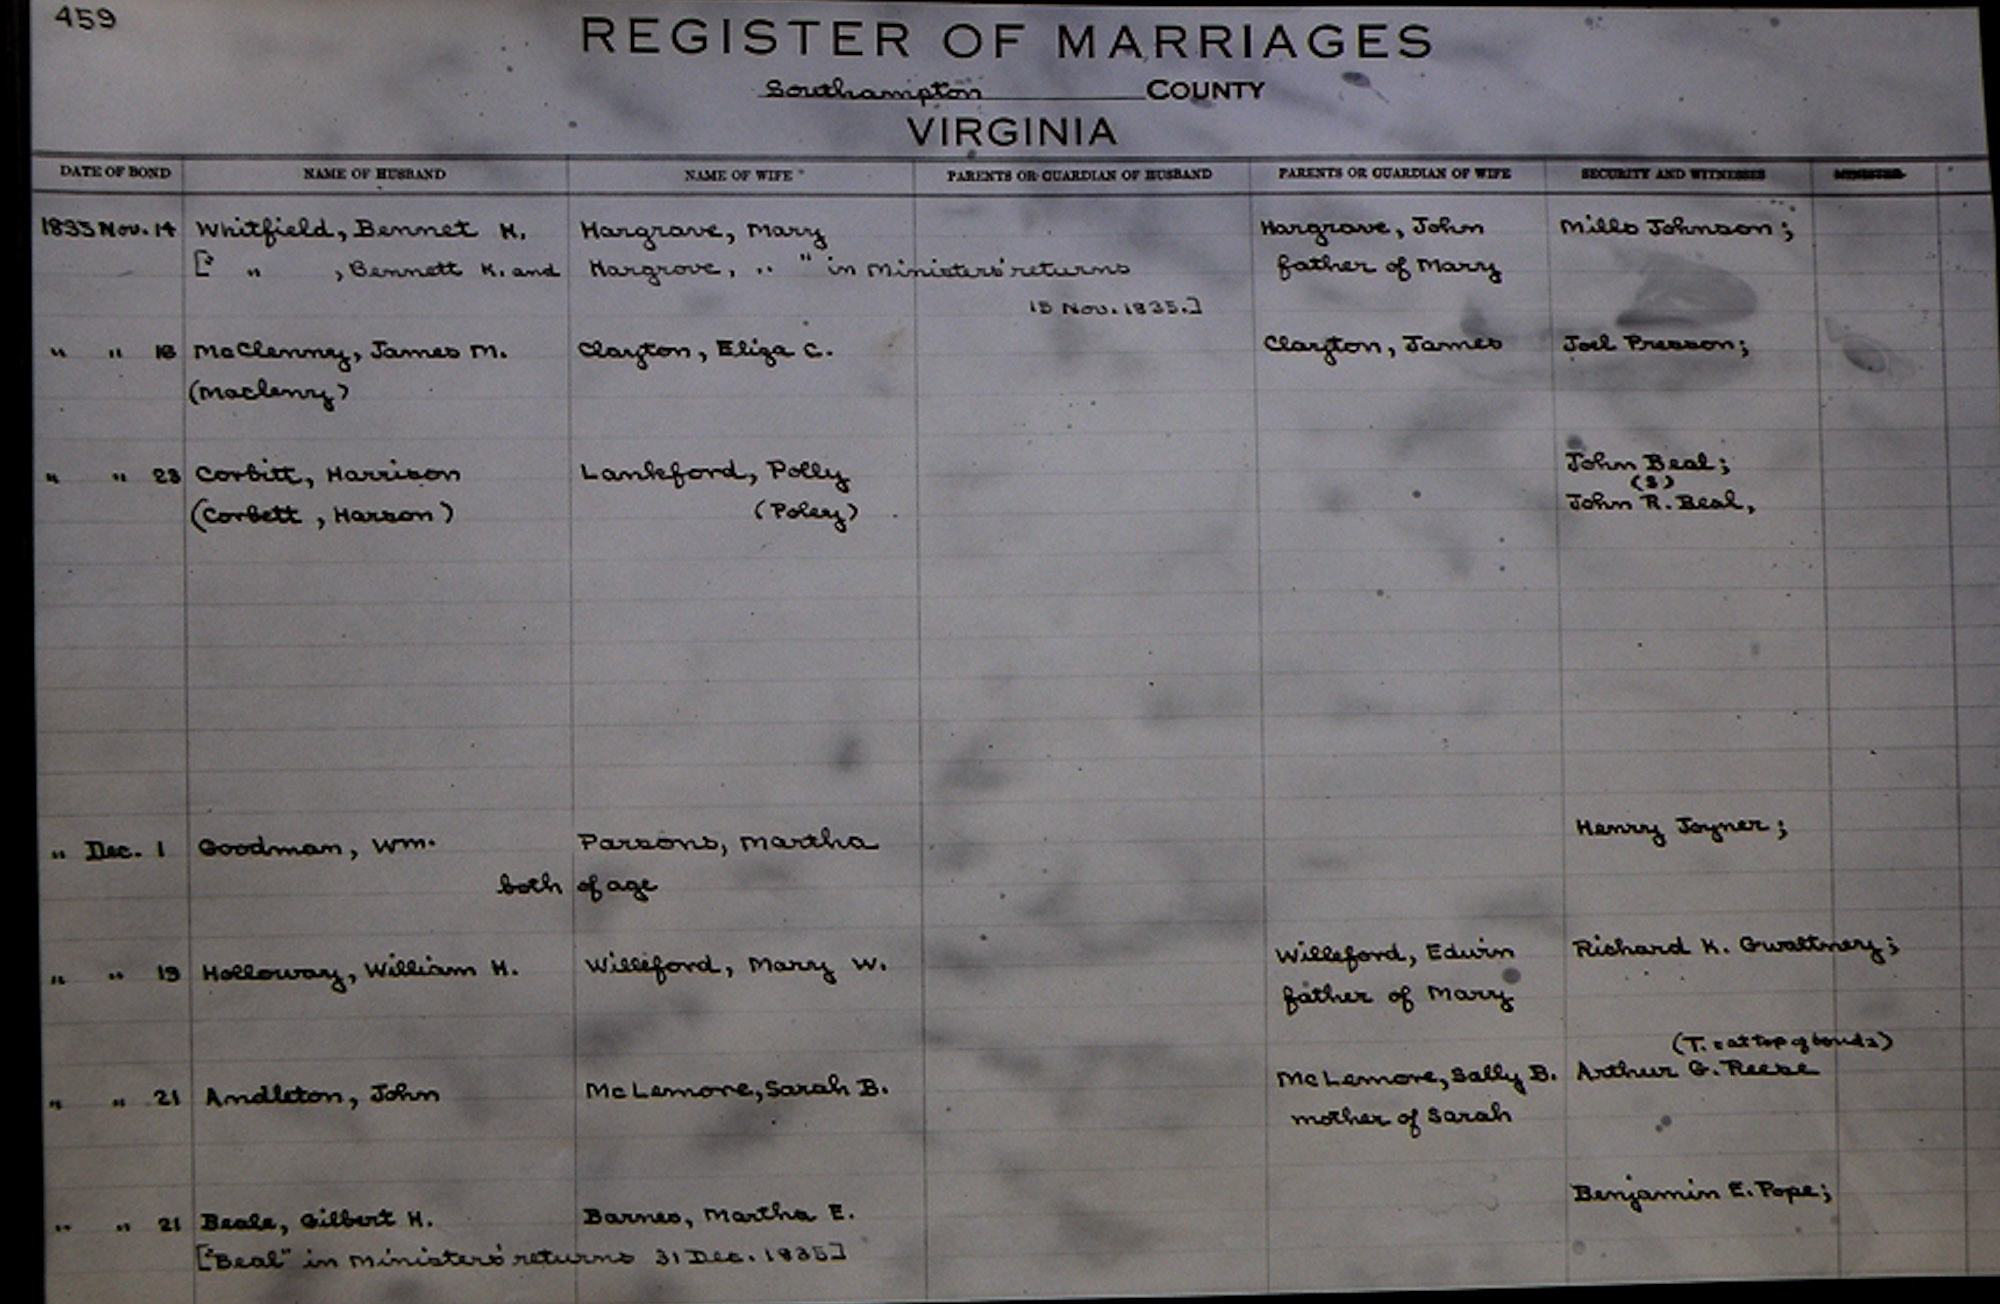 459
REGISTER OF MARRIAGES
Southampton COUNTY
VIRGINIA
DATE OF BOND NAME OF HUSBAND NAME OF WIFE PARENTS OR GUARDIAN OF HUSBAND PARENTS OR GUARDIAN OF WIFE SECURITY AND WITNESSES MINISTER
1835 Nov. 14 Whitfield, Bennet H. Hargrave, Mary Hargrave, John Mills Johnson;
[" " , Bennett K. and Hargrove, " " in Ministers' returns father of Mary
15 Nov. 1835.]
" " 16 McClenney, James M. Clayton, Eliza C. Clayton, James Joel Presson;
(Maclenry)
" " 23 Corbitt, Harrison Lankford, Polly John Beal;
(S)
(Corbett, Harson) (Poley) John R. Beal,
" Dec. 1 Goodman, Wm. Parsons, Martha Henry Joyner;
both of age
" " 19 Holloway, William H. Williford, Mary W. Willeford, Edwin Richard K. Gwaltney;
father of Mary
(T. at top of bond)
" " 21 Andleton, John McLemore, Sarah B. McLemore, Sally B. Arthur G. Reese
mother of Sarah
" " 21 Beale, Gilbert H. Barnes, Martha E. Benjamin E. Pope;
["Beal" in Ministers' returns 31 Dec. 1835]